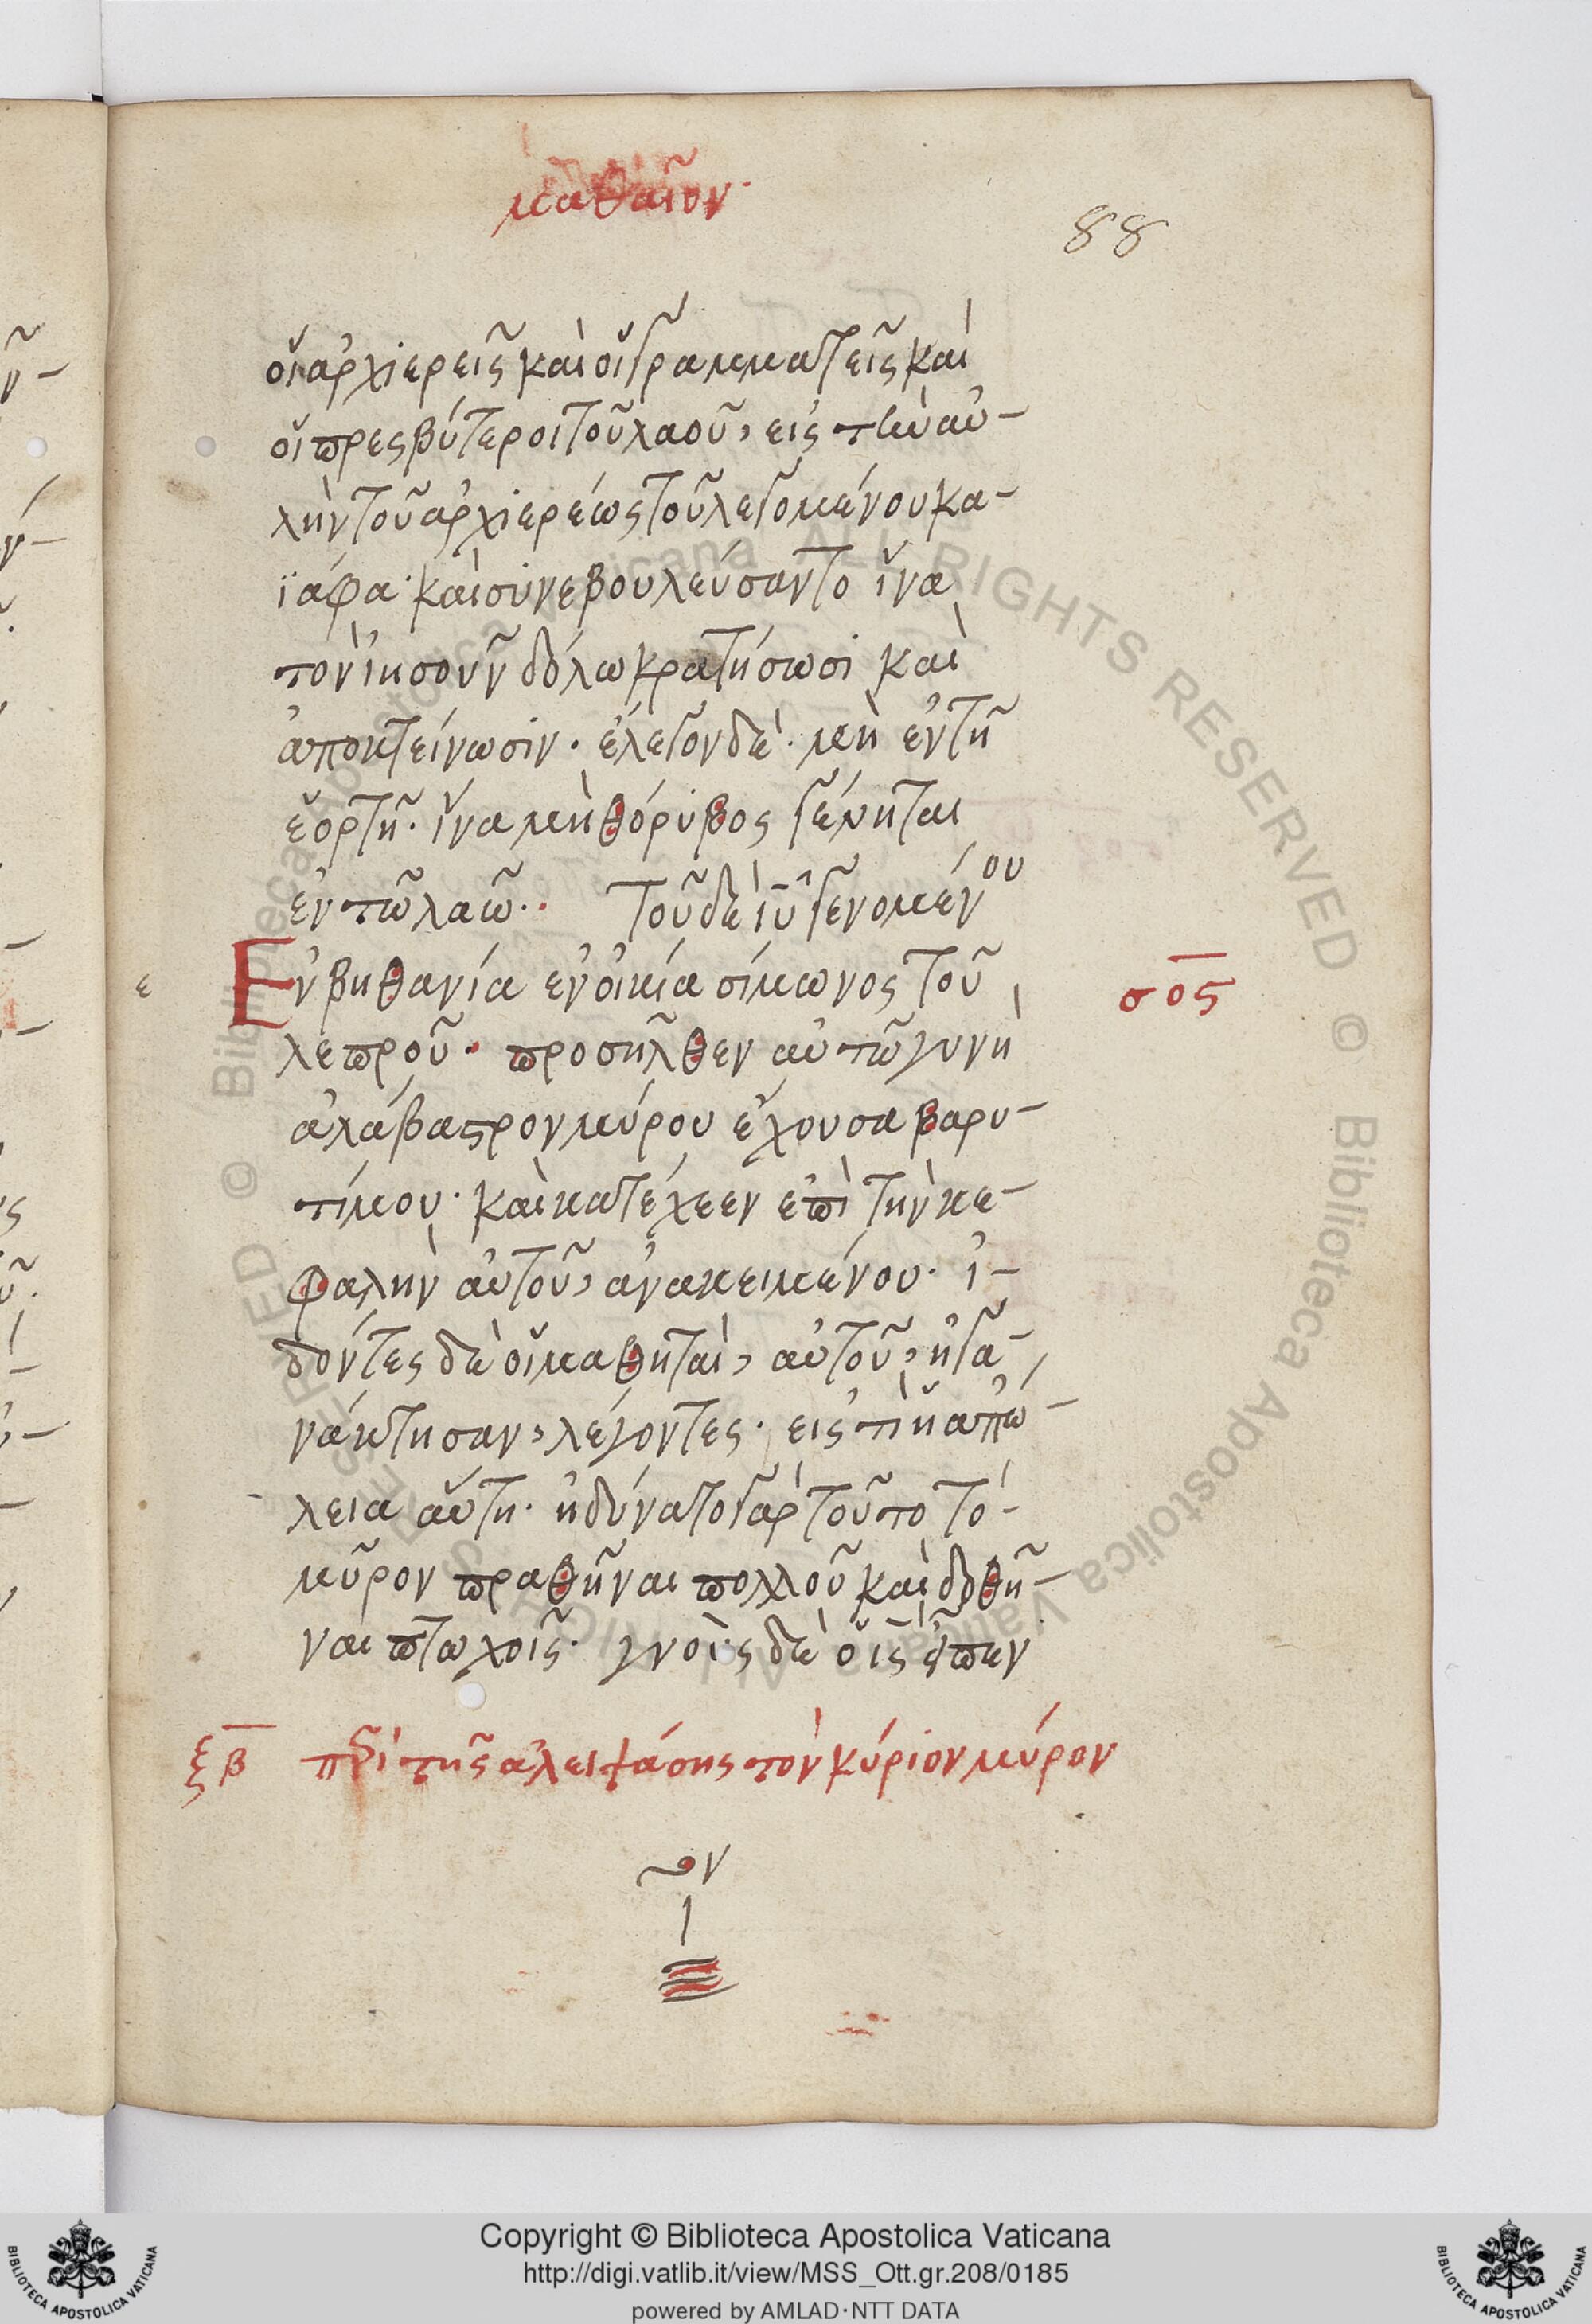 ματθαῖον·
88
οἱ ἀρχιερεῖς καὶ οἱ γραμματεῖς καὶ
οἱ πρεσβύτεροι τοῦ λαοῦ, εἰς τὴν αὐ-
λὴν τοῦ ἀρχιερέως τοῦ λεγομένου κα-
ϊάφα· καὶ συνεβουλεύσαντο ἵνα
τὸν ἰησοῦν δόλω κρατήσωσι καὶ
ἀποκτείνωσιν· ἔλεγον δέ· μὴ ἐν τῆ
ἑορτῆ· ἵνα μὴ θόρυβος γένηται
ἐν τῶ λαῶ·· Τοῦ δὲ ἰῦ γενομένου
ε Ἐν βηθανία ἐν οἰκία σίμωνος τοῦ
σος
λεπροῦ· προσῆλθεν αὐτῶ γυνὴ
ἀλάβαστρον μύρου ἔχουσα βαρυ-
τίμου· καὶ κατέχεεν ἐπὶ τὴν κε-
φαλὴν αὐτοῦ, ἀνακειμένου· ἰ-
δόντες δὲ οἱ μαθηταὶ, αὐτοῦ, ἠγα-
νάκτησαν, λέγοντες· εἰς τί ἡ ἀπώ-
λεια αὕτη· ἠδύνατο γὰρ τοῦτο τὸ-
μῦρον πραθῆναι πολλοῦ καὶ δοθῆ-
ναι πτωχοῖς· γνοὺς δὲ ὁ ις εἶπεν
ξβ πρὶ τῆς ἀλειψάσης τὸν κύριον μύρον
Copyright © Biblioteca Apostolica Vaticana
http://digi.vatlib.it/view/MSS_Ott.gr.208/0185
powered by AMLAD·NTT DATA